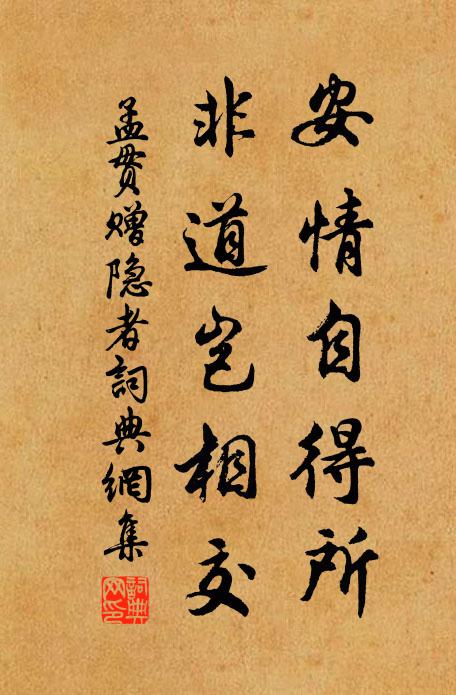 安情自得所
非道岂相交
孟贯赠隐者詞典網集
詞典网印